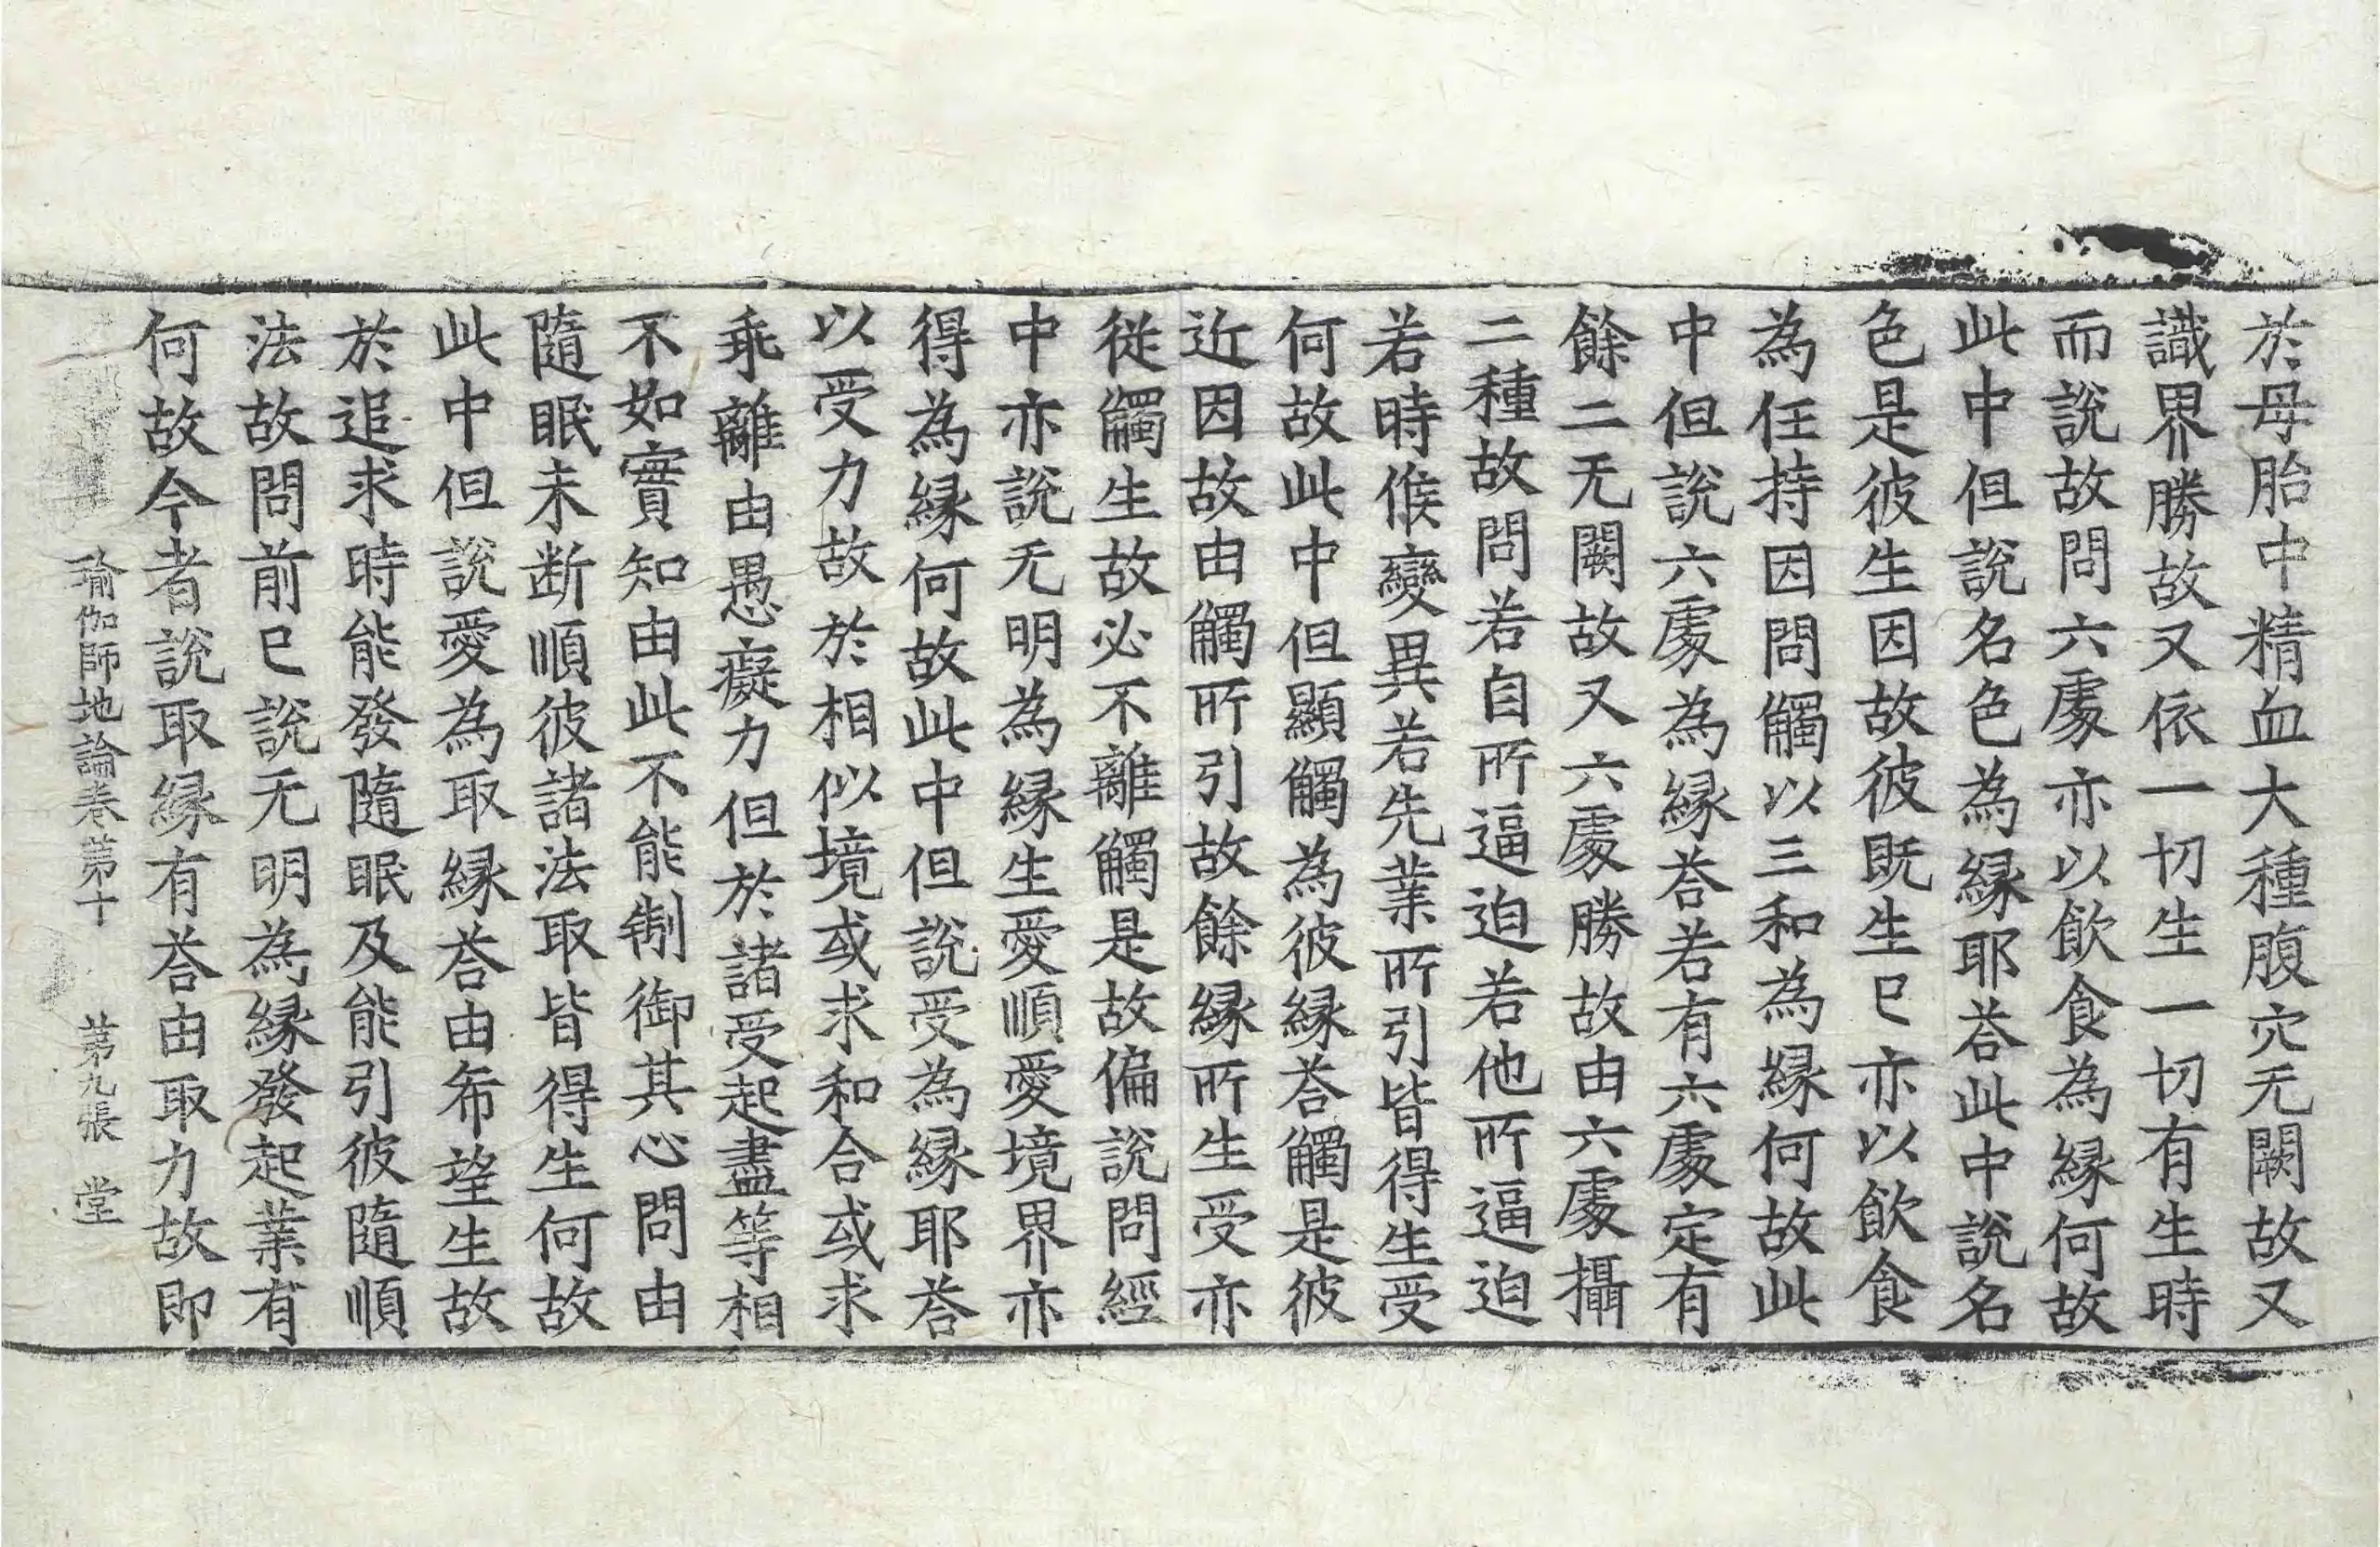 於母胎中精血大種腹穴无闕故又
識界勝故又依一切生一切有生時
而說故問六處亦以飮食為緣何故
此中但說名色為緣耶荅此中說名
色是彼生因故彼旣生已亦以飮食
為任持因問觸以三和為緣何故此
中但說六處為緣荅若有六處定有
餘二无闕故又六處勝故由六處攝
二種故問若自所逼迫若他所逼迫
若時候變異若先業所引皆得生受
何故此中但顯觸為彼緣荅觸是彼
近因故由觸所引故餘緣所生受亦
從觸生故必不離觸是故偏說問經
中亦說无明為緣生愛順愛境界亦
得為緣何故此中但說受為緣耶荅
以受力故於相似境或求和合或求
乖離由愚癡力但於諸受起盡等相
不如實知由此不能制御其心問由
隨眠未斷順彼諸法取皆得生何故
此中但說愛為取緣荅由希望生故
於追求時能發隨眠及能引彼隨順
法故問前已說无明為緣發起業有
何故今者說取緣有荅由取力故即
瑜伽師地論卷第十　第九張　堂